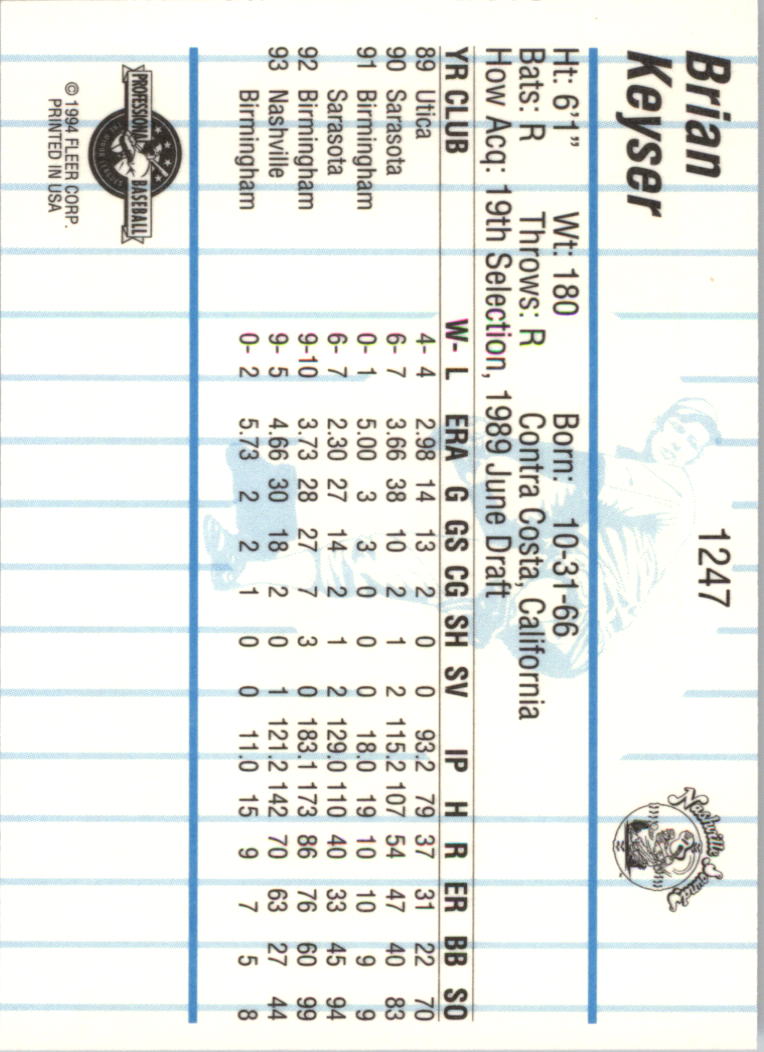 Brian
Keyser
1247
Nashville Sounds
Ht: 6'1" Wt: 180 Born: 10-31-66
Bats: R Throws: R Contra Costa, California
How Acq: 19th Selection, 1989 June Draft
YR CLUB W- L ERA G GS CG SH SV IP H R ER BB SO
89 Utica 4- 4 2.98 14 13 2 0 0 93.2 79 37 31 22 70
90 Sarasota 6- 7 3.66 38 10 2 1 2 115.2 107 54 47 40 83
91 Birmingham 0- 1 5.00 3 3 0 0 0 18.0 19 10 10 9 9
Sarasota 6- 7 2.30 27 14 2 1 2 129.0 110 40 33 45 94
92 Birmingham 9-10 3.73 28 27 7 3 0 183.1 173 86 76 60 99
93 Nashville 9- 5 4.66 30 18 2 0 1 121.2 142 70 63 27 44
Birmingham 0- 2 5.73 2 2 1 0 0 11.0 15 9 7 5 8
PROFESSIONAL BASEBALL
© 1994 FLEER CORP.
PRINTED IN USA